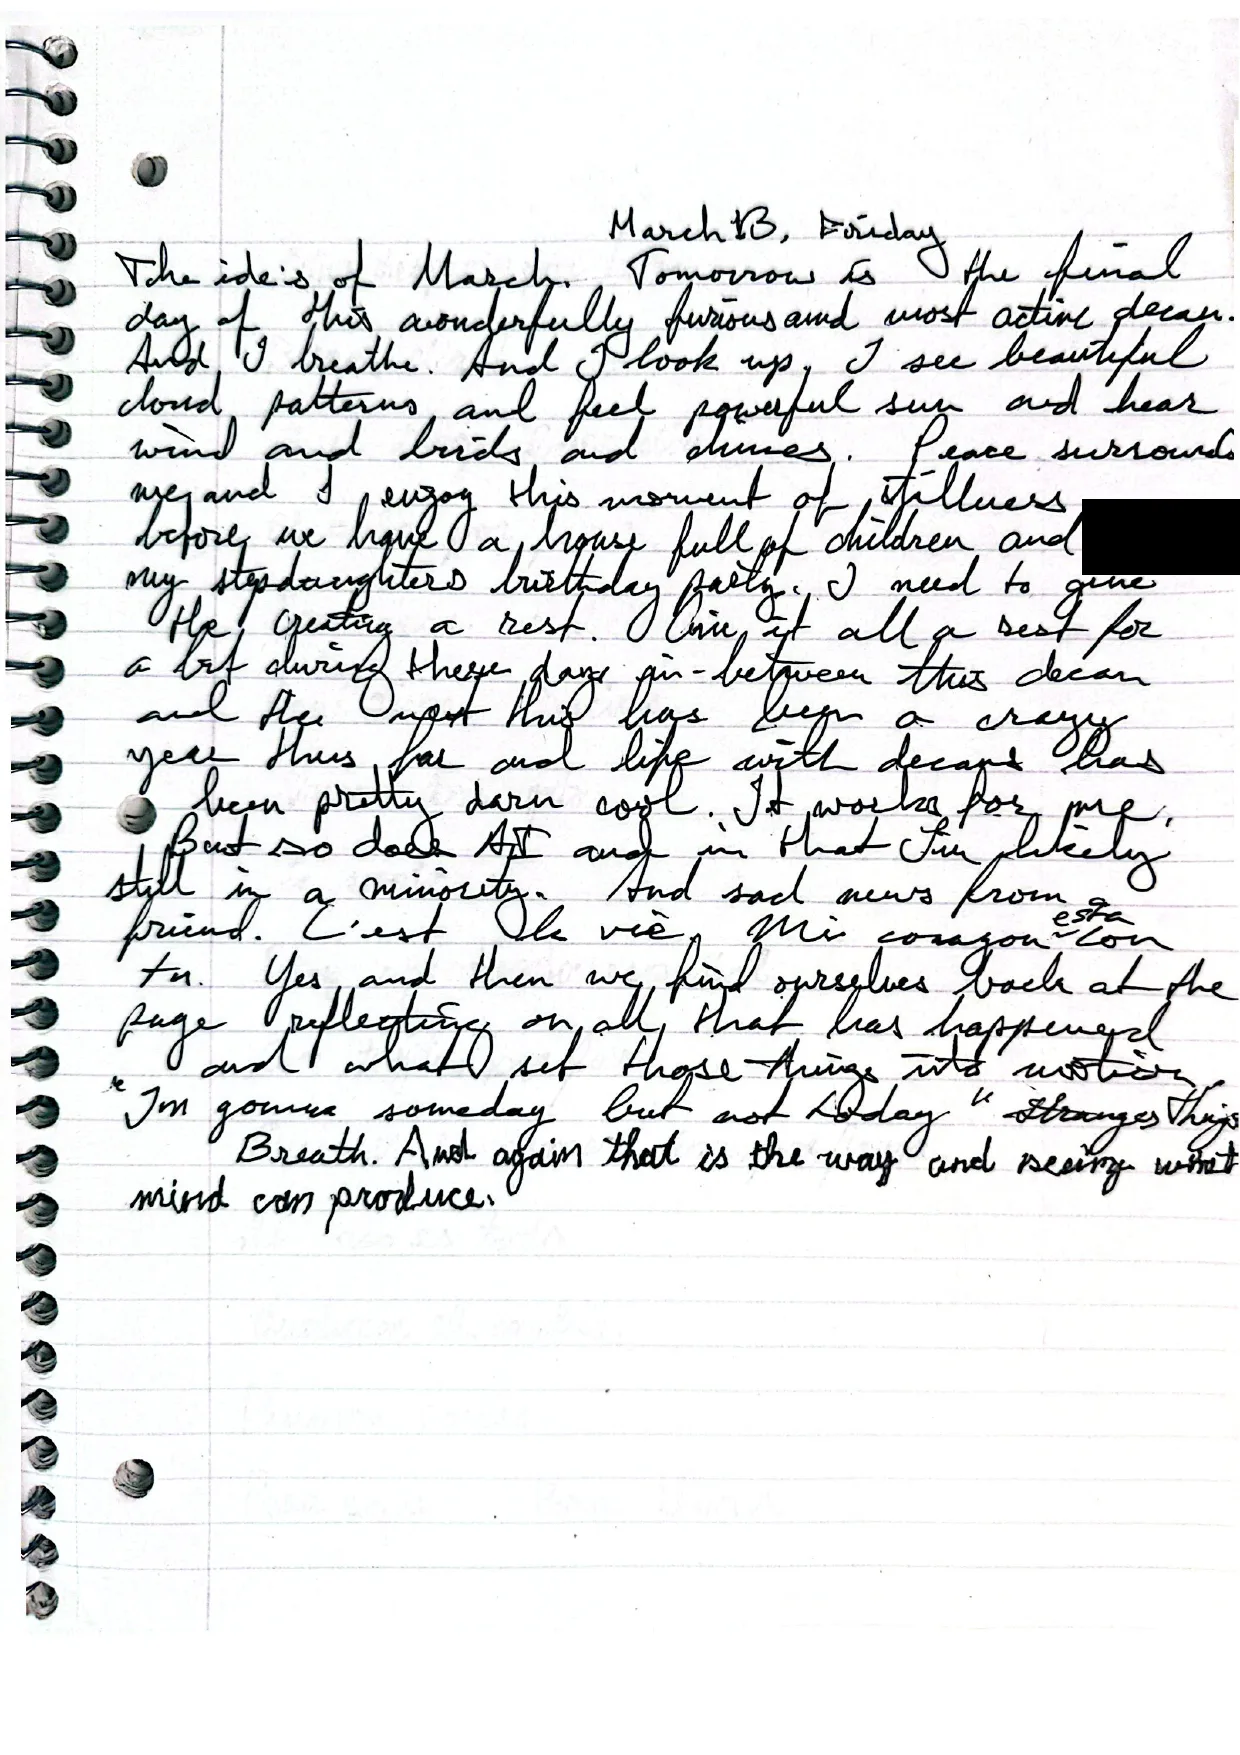 March 13, Friday
The ide's of March. Tomorrow is the final
day of this wonderfully furious and most active decan.
And I breathe. And I look up, I see beautiful
cloud patterns and feel powerful sun and hear
wind and birds and chimes. Peace surrounds
me and I enjoy this moment of stillness
before we have a house full of children and
my stepdaughters birthday party. I need to give
the creating a rest. Give it all a rest for
a bit during these days in-between this decan
and the next this has been a crazy
year thus far and life with decans has
been pretty darn cool. It works for me.
But so does AI and in that I'm likely
still in a minority. And sad news from a
friend. C'est la vie. Mi corazon esta con
tu. Yes and then we find ourselves back at the
page reflecting on all that has happened
and what set those things into motion.
"I'm gonna someday but not today" Stranges Things
Breath. And again that is the way and seeing what
mind can produce.